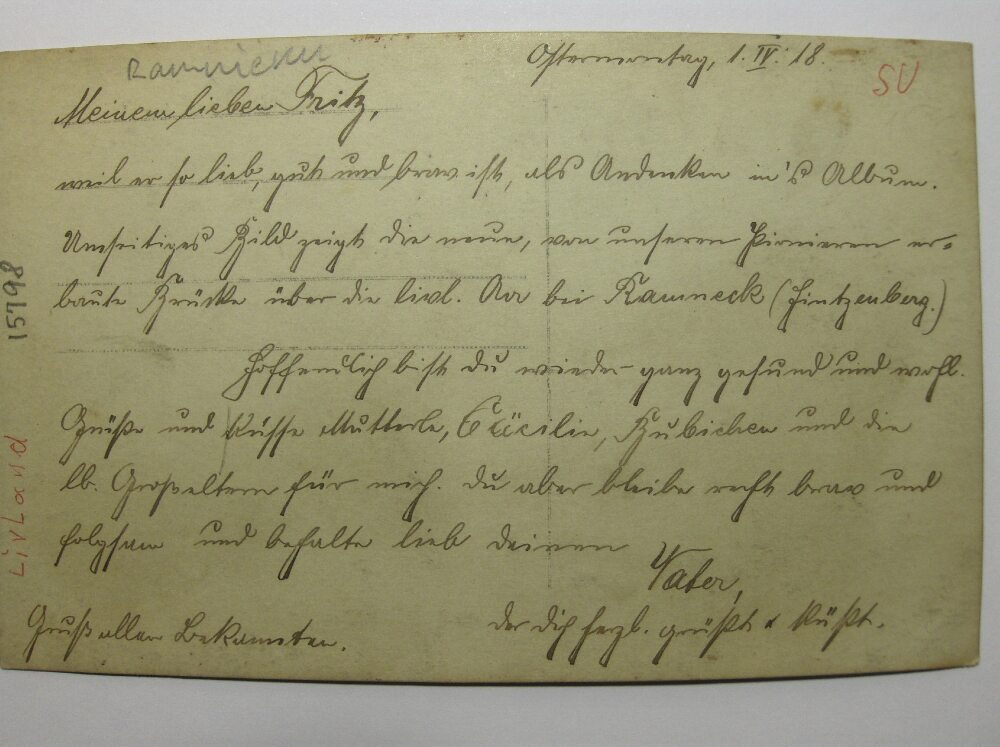 Ramnieku
Ostermontag, 1. IV. 18.
SU
Meinem lieben Fritz,
weil er so lieb, gut und brav ist, als Andenken in's Album.
Umseitiges Bild zeigt die neue, von unseren Pionieren er-
baute Brücke über die livl. Aa bei Ramneck (Hintzenberg.)
Hoffendlich bist du wieder ganz gesund und wohl.
Grüße und Küsse Mutterle, Cäcilie, Bubichen und die
lb. Großeltern für mich. Du aber bleibe recht brav und
folgsam und behalte lieb deinen
Vater,
der dich herzl. grüßt & küßt.
Gruß allen Bekannten.
15798
Livland